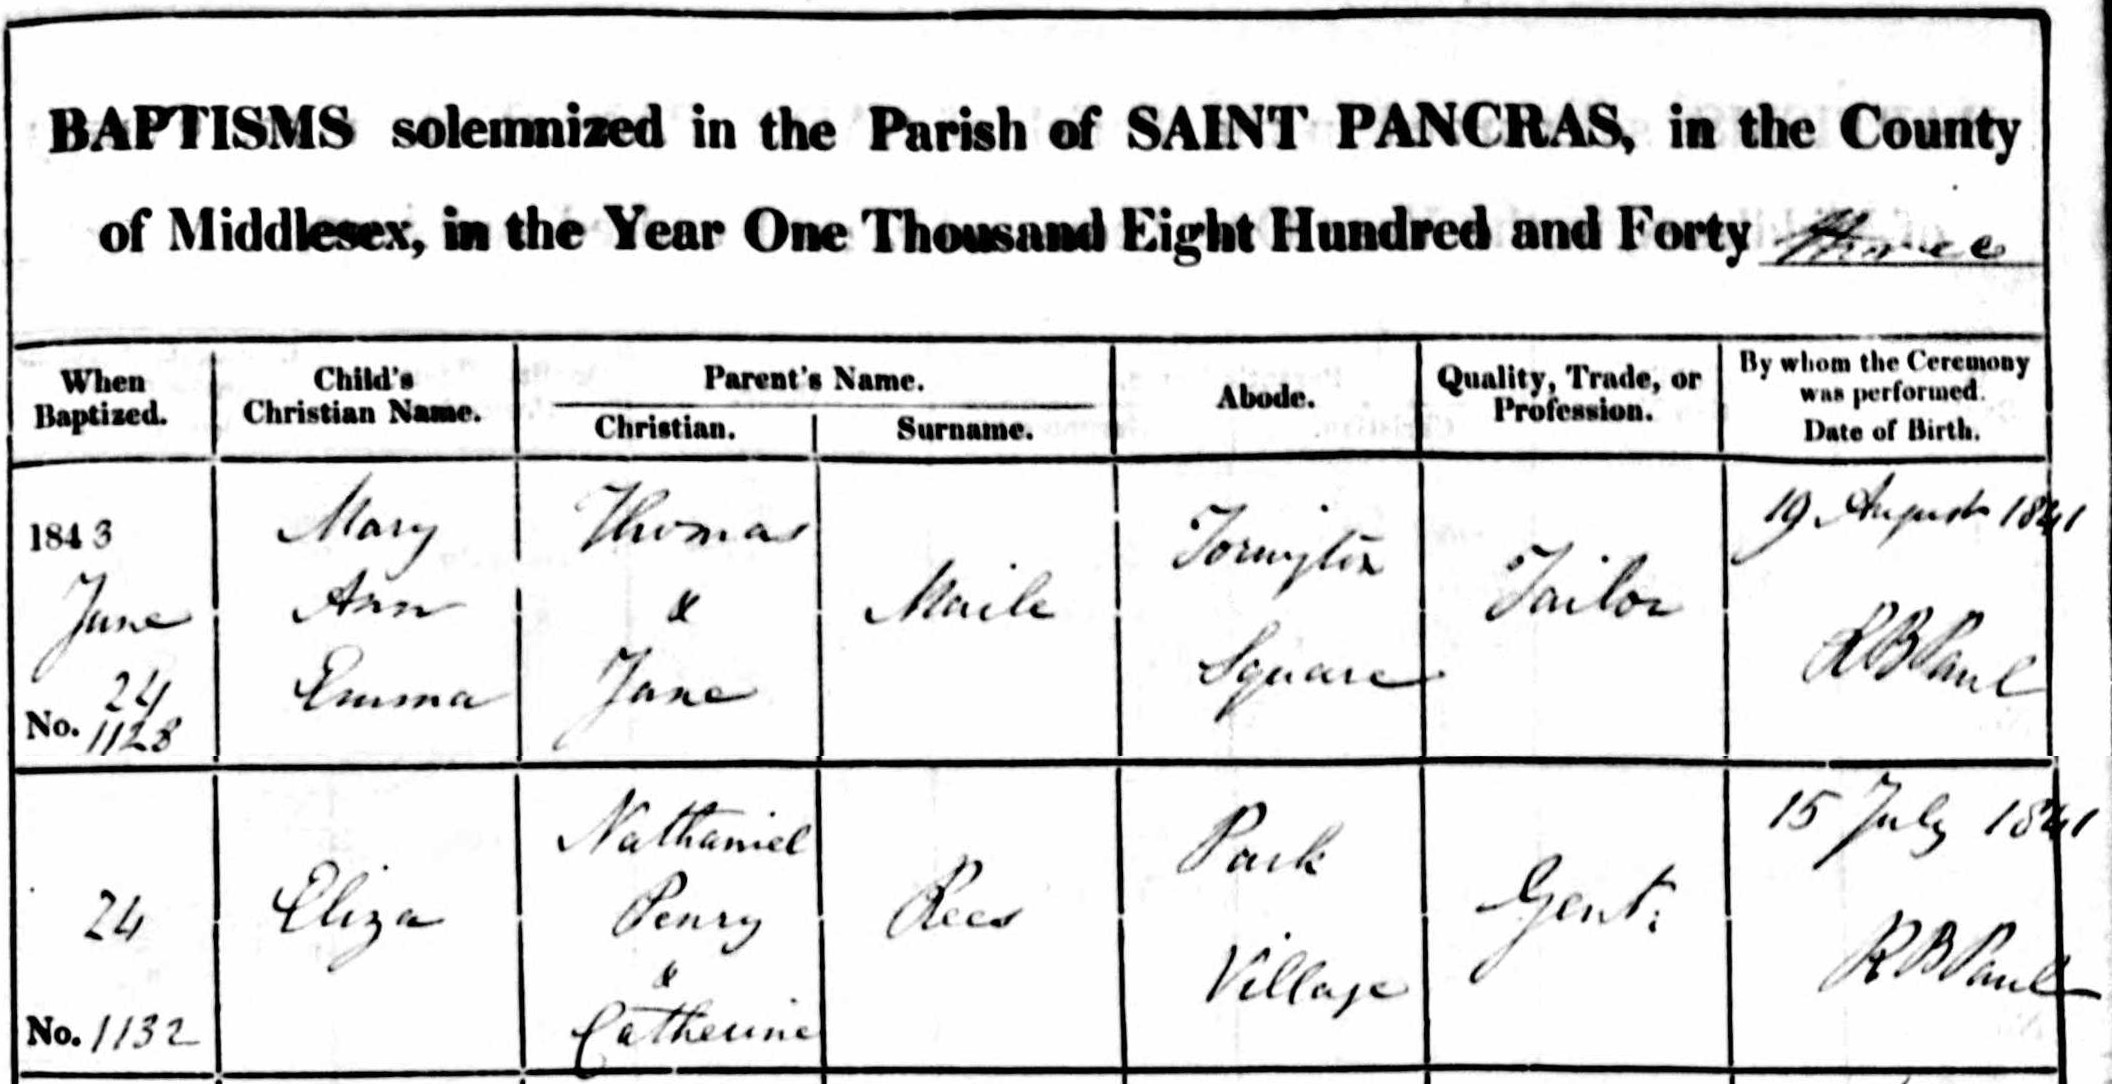 BAPTISMS solemnized in the Parish of SAINT PANCRAS, in the County
of Middlesex, in the Year One Thousand Eight Hundred and Forty three
When Baptized.
Child's Christian Name.
Parent's Name.
Christian.
Surname.
Abode.
Quality, Trade, or Profession.
By whom the Ceremony was performed.
Date of Birth.
1843
June
24
No. 1128
Mary
Ann
Emma
Thomas
&
Jane
Maile
Torington
Square
Tailor
19 August 1841
R B Paul
24
No. 1132
Eliza
Nathaniel
Penry
&
Catherine
Rees
Park
Village
Gent:
15 July 1841
R B Paul